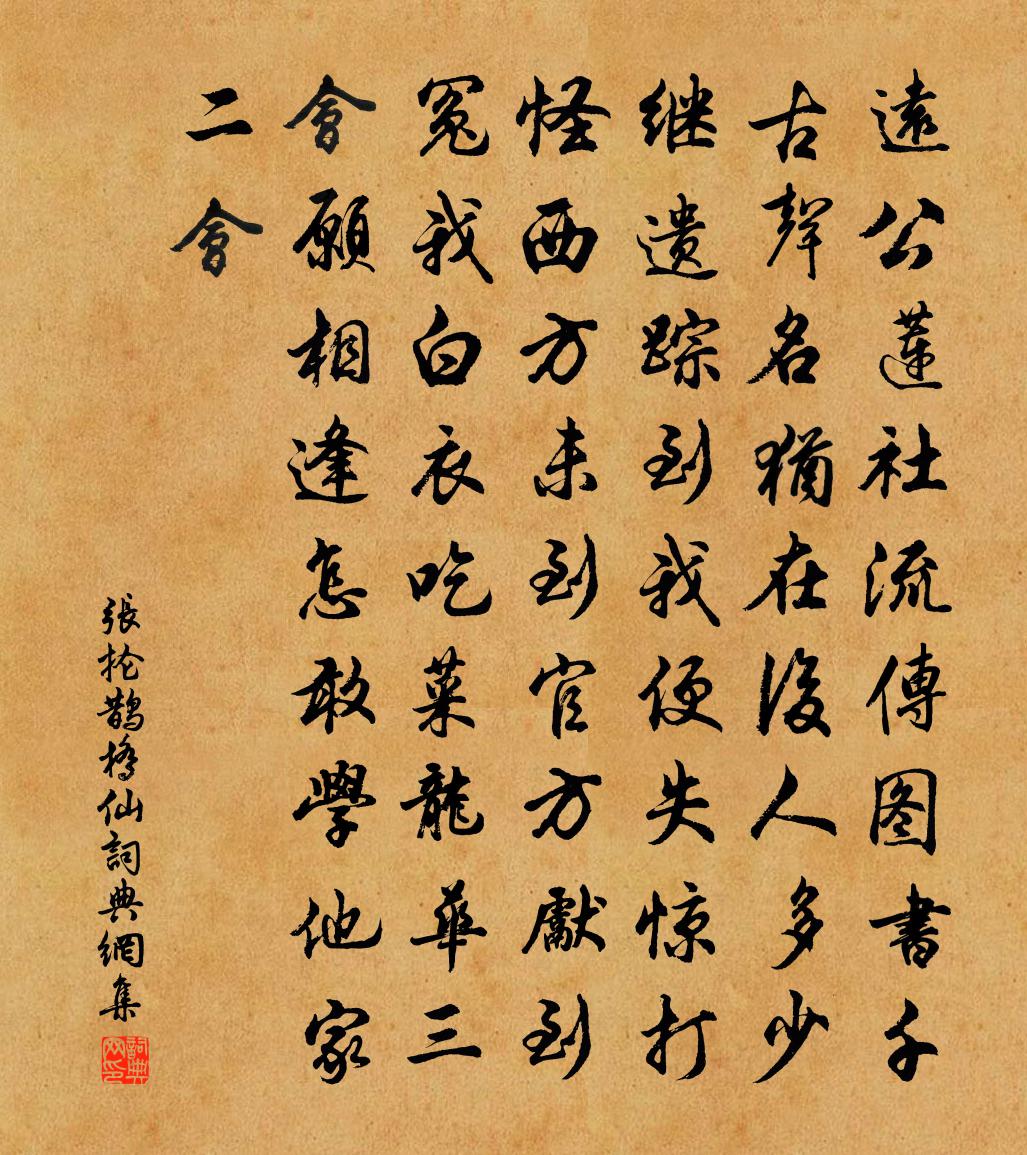 遠公蓮社流傳图書千
古聲名猶在後人多少
继遺踪到我便失惊打
怪西方未到官方獻到
冤我白衣吃菜龍華三
會願相逢怎敢學他家
二會
張抡鹊橋仙詞典網集
詞典网印